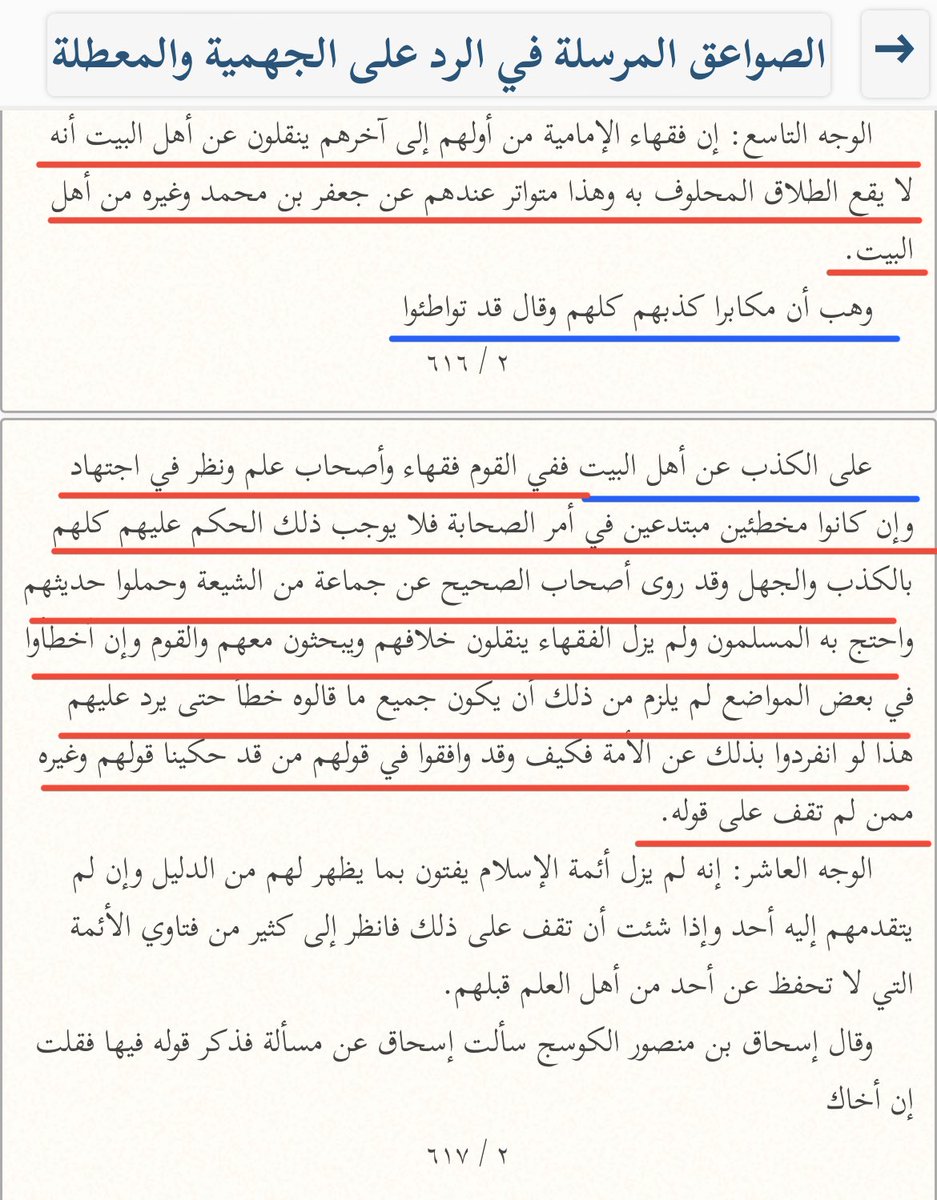 الصواعق المرسلة في الرد على الجهمية والمعطلة
الوجه التاسع: إن فقهاء الإمامية من أولهم إلى آخرهم ينقلون عن أهل البيت أنه
لا يقع الطلاق المحلوف به وهذا متواتر عندهم عن جعفر بن محمد وغيره من أهل
البيت.
وهب أن مكابرا كذبهم كلهم وقال قد تواطئوا
٢ / ٦١٦
على الكذب عن أهل البيت ففي القوم فقهاء وأصحاب علم ونظر في اجتهاد
وإن كانوا مخطئين مبتدعين في أمر الصحابة فلا يوجب ذلك الحكم عليهم كلهم
بالكذب والجهل وقد روى أصحاب الصحيح عن جماعة من الشيعة وحملوا حديثهم
واحتج به المسلمون ولم يزل الفقهاء ينقلون خلافهم ويبحثون معهم والقوم وإن أخطأوا
في بعض المواضع لم يلزم من ذلك أن يكون جميع ما قالوه خطأ حتى يرد عليهم
هذا لو انفردوا بذلك عن الأمة فكيف وقد وافقوا في قولهم من قد حكينا قولهم وغيره
ممن لم تقف على قوله.
الوجه العاشر: إنه لم يزل أئمة الإسلام يفتون بما يظهر لهم من الدليل وإن لم
يتقدمهم إليه أحد وإذا شئت أن تقف على ذلك فانظر إلى كثير من فتاوي الأئمة
التي لا تحفظ عن أحد من أهل العلم قبلهم.
وقال إسحاق بن منصور الكوسج سألت إسحاق عن مسألة فذكر قوله فيها فقلت
إن أخاك
٢ / ٦١٧